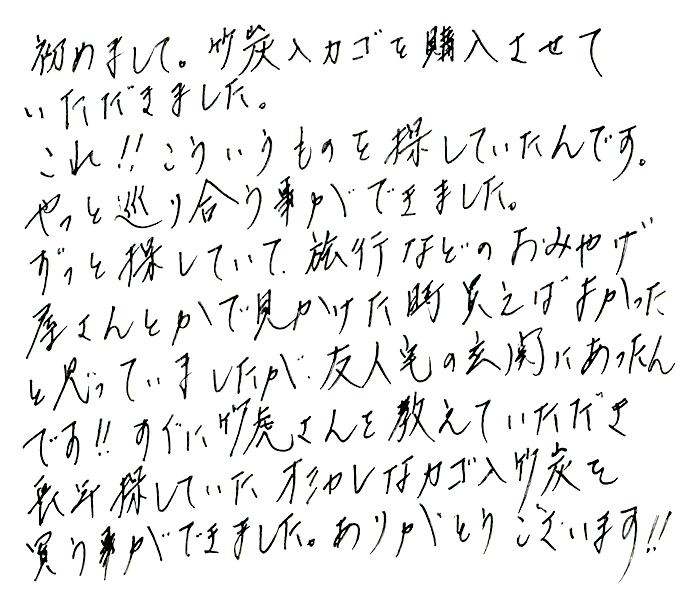 初めまして。竹炭入カゴを購入させて
いただきました。
これ!!こういうものを探していたんです。
やっと巡り合う事ができました。
ずっと探していて、旅行などのおみやげ
屋さんとかで見かけた時買えばよかった
と思っていましたが、友人宅の玄関にあったん
です!!すぐに竹虎さんを教えていただき
長年探していたオシャレなカゴ入竹炭を
買う事ができました。ありがとうございます!!